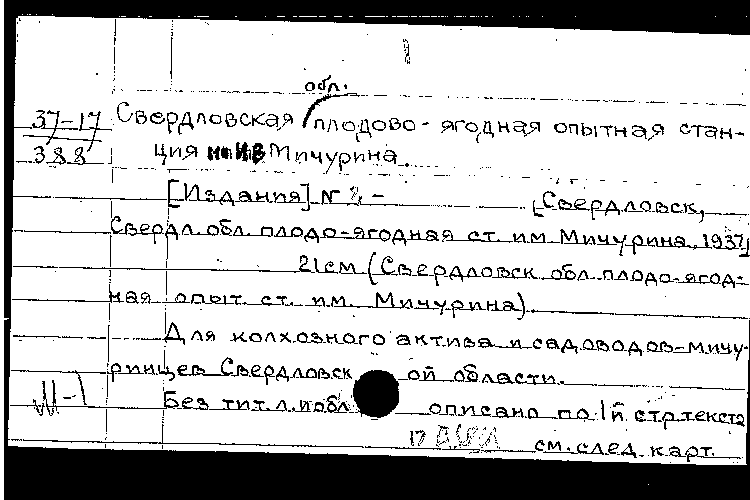 обл.
37-17 Свердловская плодово-ягодная опытная стан-
388 ция им И.В. Мичурина.
[Издания] № 2 - [Свердловск,
Свердл. обл. плодо-ягодная ст. им Мичурина, 1937]
21 см (Свердловск обл. плодо-ягод-
ная опыт. ст. им. Мичурина).
Для колхозного актива и садоводов-мичу-
ринцев Свердловской области.
Без тит. л. и обл описано по 1й стр. текста
см. след. карт.